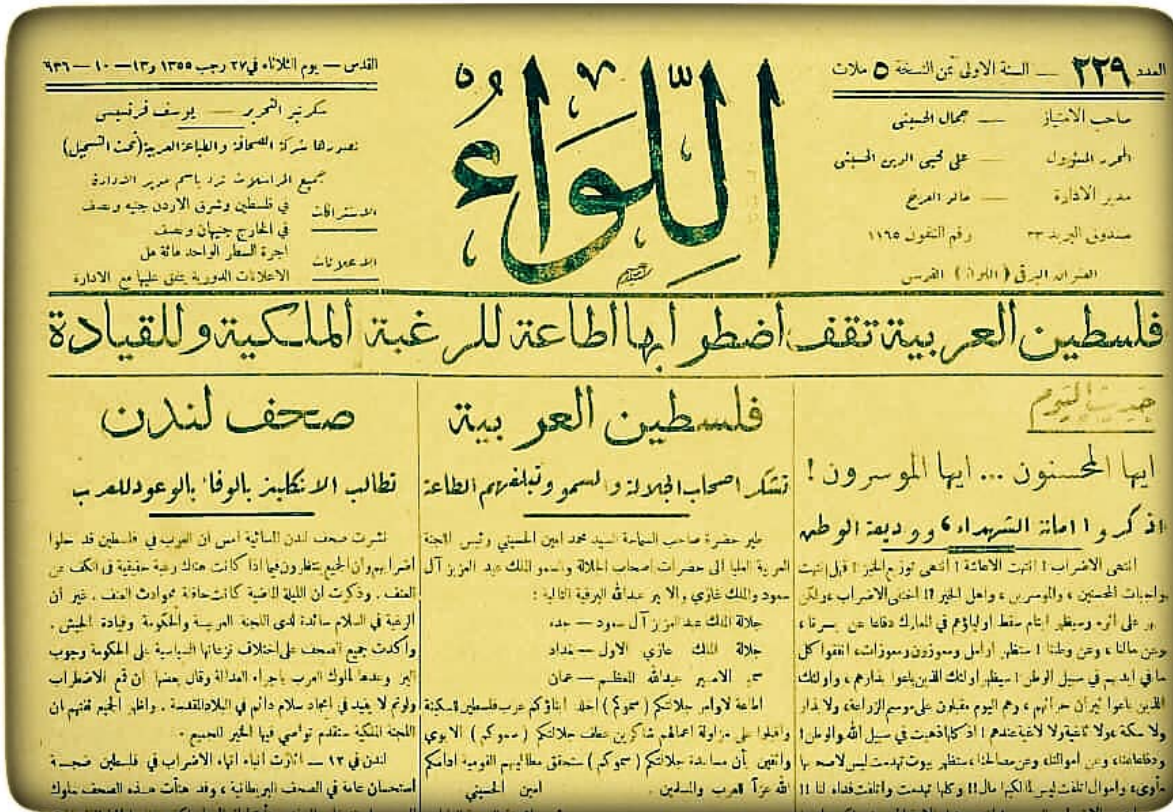 العدد ٢٢٩ — السنة الاولى ثمن النسخة ٥ ملات
صاحب الامتياز — جمال الحسيني
المحرر المسؤول — علي محيي الدين الحسيني
مدير الادارة —
صندوق البريد ٣٣ رقم التلفون ١١٦٥
العنوان البرقي ( اللواء ) القدس
اللِّوَاءُ
القدس — يوم الثلاثاء في ٢٧ رجب ١٣٥٥ و ١٣ — ١٠ — ٩٣٦
سكرتير التحرير — يوسف فرنسيس
تصدرها شركة الصحافة والطباعة العربية (تحت التسجيل)
جميع المراسلات ترد باسم مدير الادارة
الاشتراكات في فلسطين وشرق الاردن جنيه ونصف
في الخارج جنيهان ونصف
الاعلانات اجرة السطر الواحد مائة مل
الاعلانات الدورية يتفق عليها مع الادارة
فلسطين العربية تقف اضطرابها اطاعة للرغبة الملكية وللقيادة
حديث اليوم
ايها المحسنون ... ايها الموسرون !
اذكروا امانة الشهداء، ووديعة الوطن
انتهى الاضراب ! انتهت الاعانة ! انتهى توزيع الخبز ! فهل انتهت
واجبات المحسنين ، والموسرين ، واهل الخير !! اختفى الاضراب ، ولكن
على اثره وسيظهر ايتام سقط اولياؤهم في المعارك دفاعا عن
وعن مالنا ، وعن وطننا ! ستظهر ارامل ومعوزون ومعوزات ، انفقوا كل
ما في ايديهم في سبيل الوطن ! سيظهر اولئك الذين باعوا بذارهم ، واولئك
الذين باعوا ثيران حراثهم ، وهم اليوم مقبلون على موسم الزراعة ، ولا بذار
ولا سكة ولا ثاغية ولا لاغية عندهم ! اذ كلها ذهبت في سبيل الله والوطن !
ودفاعا عنا ، وعن اموالنا ، وعن مصالحنا ، ستظهر بيوت تهدمت ليس لاصحابها
مأوى ، واموال اتلفت ليس لمالكيها مال !! وكلها تهدمت واتلفت فداء لنا !!
فلسطين العربية
تشكر اصحاب الجلالة والسمو وتبلغهم الطاعة
طير حضرة صاحب السماحة السيد محمد امين الحسيني رئيس اللجنة
العربية العليا الى حضرات اصحاب الجلالة والسمو الملك عبد العزيز آل
سعود والملك غازي ، والامير عبدالله البرقية التالية :
جلالة الملك عبد العزيز آل سعود — جده
جلالة الملك غازي الاول — بغداد
سمو الامير عبدالله المعظم — عمان
اطاعة لاوامر جلالتكم ( سموكم ) اخلد ابناؤكم عرب فلسطين للسكينة
واقبلوا على مزاولة اعمالهم شاكرين عطف جلالتكم ( سموكم ) الابوي
واثقين بأن مساعدة جلالتكم ( سموكم ) ستحقق مطاليبهم القومية ادامكم
الله عزا للعرب والمسلمين . امين الحسيني
صحف لندن
تطالب الانكليز بالوفاء بالوعود للعرب
نشرت صحف لندن المسائية امس ان العرب في فلسطين قد حلوا
اضرابهم وأن الجميع ينتظرون فيما اذا كانت هناك رغبة حقيقية في الكف عن
العنف . وذكرت ان الليلة الماضية كانت حافلة بحوادث العنف . غير ان
الرغبة في السلام سائدة لدى اللجنة العربية والحكومة وقيادة الجيش .
وأكدت جميع الصحف على اختلاف نزعاتها السياسية على الحكومة وجوب
البر وعدها لملوك العرب باجراء العدالة وقال بعضها ان قمع الاضطراب
ولوتم لا يفيد في ايجاد سلام دائم في البلاد المقدسة . واظهر الجميع ثقتهم ان
اللجنة الملكية ستقدم توصي فيها الخير للجميع .
لندن في ١٣ — اثارت أنباء انهاء الاضراب في فلسطين ضجة
استحسان عامة في الصحف البريطانية ، وقد هنأت هذه الصحف ملوك